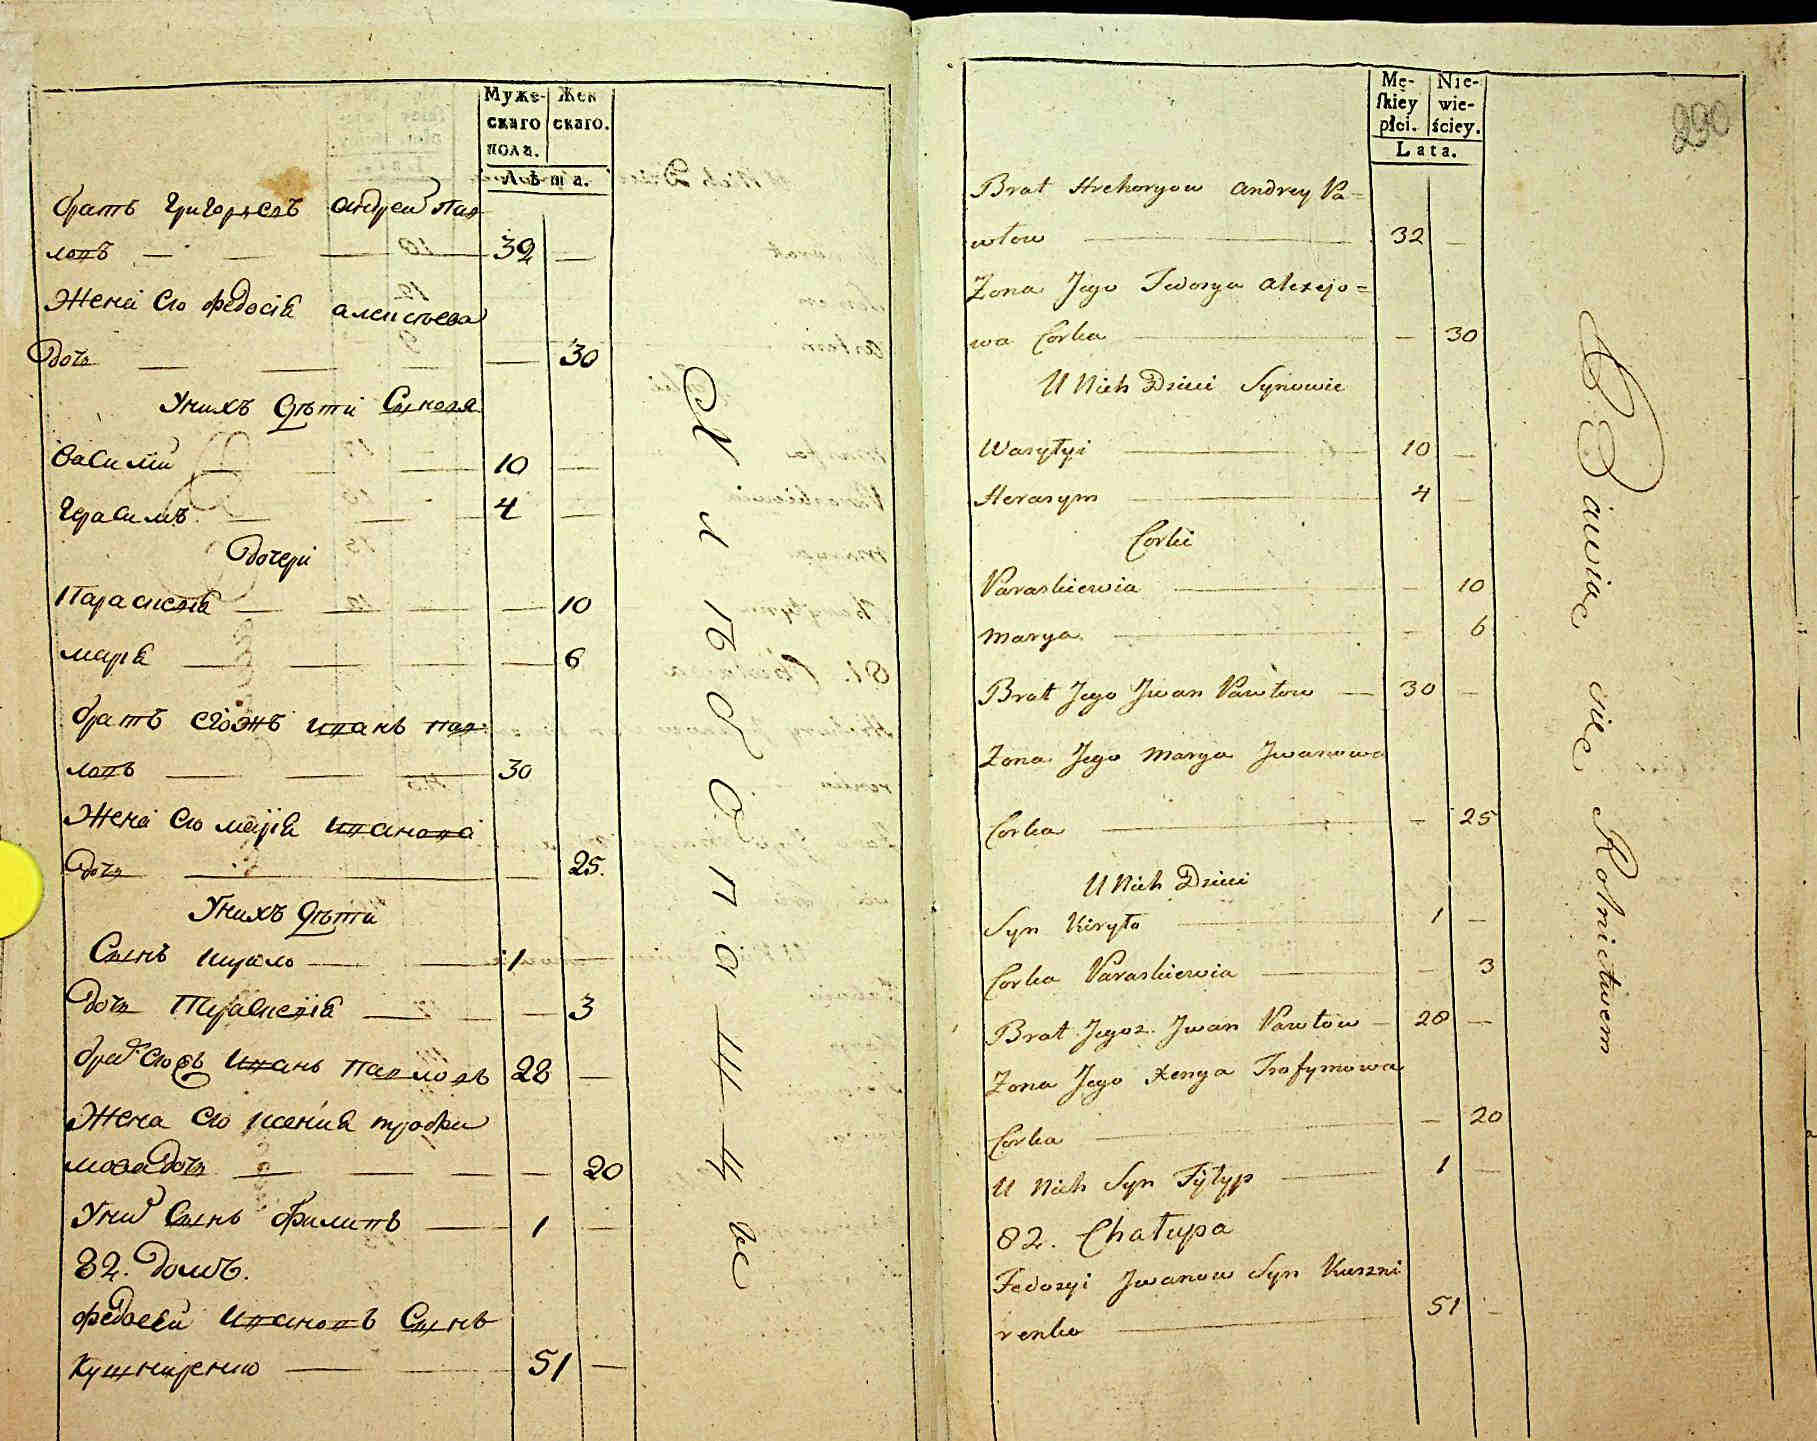 Муже-
скаго
пола.
Жен
скаго.
Лѣта.
братъ Григорьевъ андрей пав
ловъ 32
Жена его федосія алексѣева
дочь 30
У нихъ дѣти Сыновя
василій 10
Герасимъ 4
дочери
Параскевія 10
марія 6
братъ егожъ иванъ пав
ловъ 30
Жена его марія иванова
дочь 25.
У нихъ дѣти
Сынъ кирило 1
дочь Параскевія 3
братъ его 2ъ иванъ павловъ 28
Жена его ксенія трофи
мова дочь 20
У них Сынъ филипъ 1
82. домъ.
федосей ивановъ Сынъ
Кушниренко 51
Хлебопашцы
290
Mę-
skiey
płci.
Nie-
wie-
ściey.
Lata.
Brat Hrehoryow andrey Pa=
włow 32
Zona Jego Fedosya alexejo=
wa Corka 30
U Nich Dzieci Synowie
Wasyłyi 10
Herasym 4
Corki
Paraskiewia 10
marya 6
Brat Jego Jwan Pawłow 30
Zona Jego marya Jwanowa
Corka 25
U Nich Dzieci
Syn Kiryło 1
Corka Paraskiewia 3
Brat Jego 2. Jwan Pawłow 28
Zona Jego Xenya Trofymowa
Corka 20
U Nich Syn Fyłyp 1
82. Chałupa
Fedosyi Jwanow Syn Kuszni
renko 51
Bawiąc się Rolnictwem